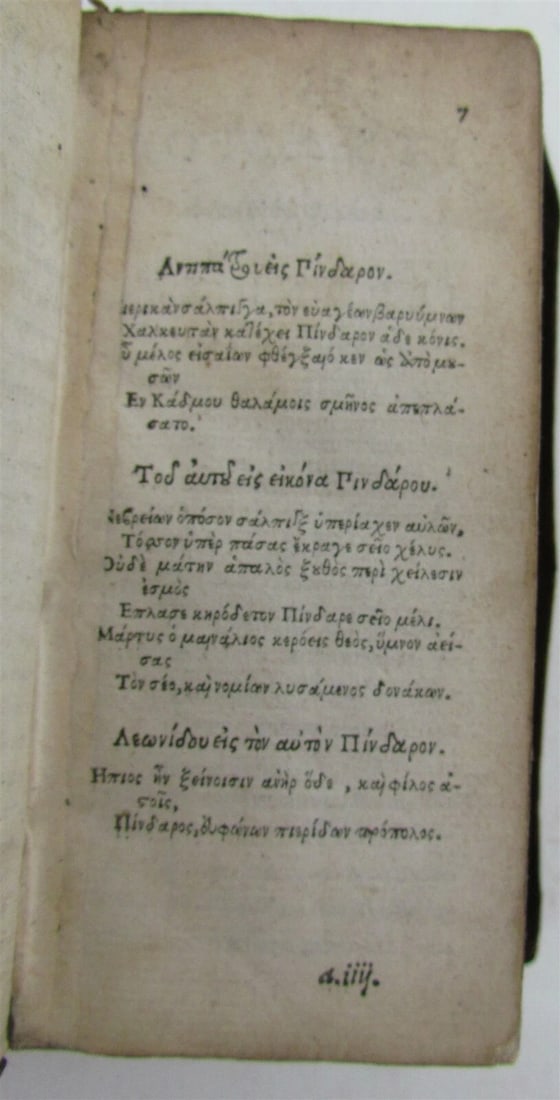 7
Αντιπάτρου εἰς Πίνδαρον.
ιερικὰν σάλπιγγα, τὸν εὐαγέων βαρὺν ὕμνων
Χαλκευτὰν κατέχει Πίνδαρον ἁδε κόνις.
ὗ μέλος εἰσαίων φθέγξαιό κεν ὡς ἀπὸ μου-
σῶν
Ἐν Κάδμου θαλάμοις σμῆνος ἀπεπλά-
σατο.
Τοῦ ἀυτοῦ εἰς εἰκόνα Πινδάρου.
Νεβρείων ὁπόσον σάλπιγξ ὑπερίαχεν αὐλῶν,
Τόσσον ὑπὲρ πάσας ἔκραγε σεῖο χέλυς.
Ουδὲ μάτην ἁπαλὸς ξουθὸς περὶ χείλεσιν
ἑσμὸς
Επλασε κηρόδετον Πίνδαρε σεῖο μέλι.
Μάρτυς ὁ μαινάλιος κερόεις θεὸς, ὕμνον ἀεί-
σας
Τὸν σέο, καὶ νομίων λυσάμενος δονάκων.
Λεωνίδου εἰς τὸν αὐτὸν Πίνδαρον.
Ηπιος ἦν ξείνοισιν ἀνὴρ ὅδε, καὶ φίλος ἀ-
στοῖς,
Πίνδαρος, ἐυφώνων πιερίδων πρόπολος.
a.iiij.